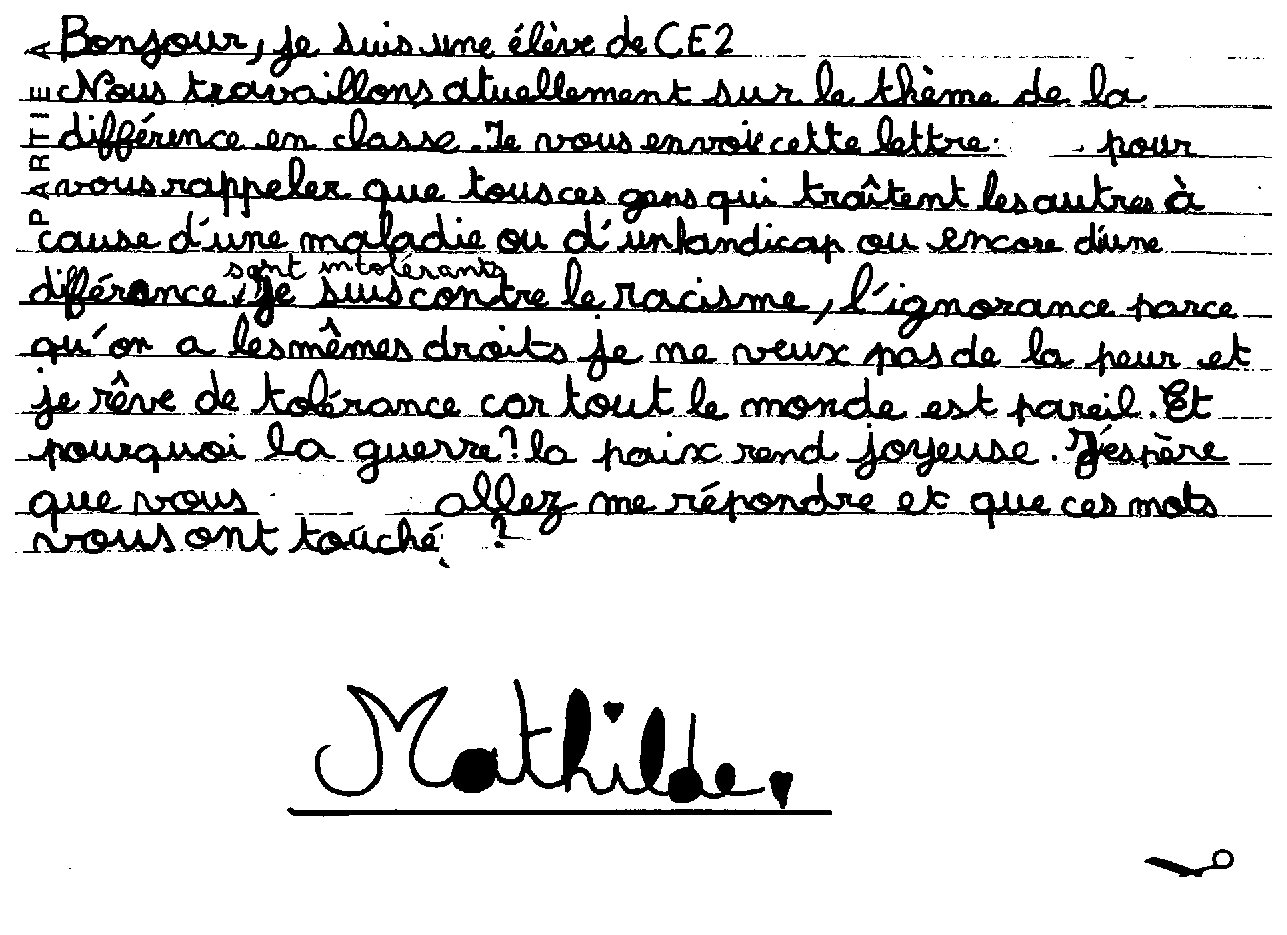 PARTIE A
Bonjour, je suis une élève de CE2
Nous travaillons atuellement sur le thème de la
différence en classe. Je vous envoie cette lettre pour
vous rappeler que tous ces gens qui traîtent les autres à
cause d'une maladie ou d'un handicap ou encore d'une
sont intolérants
différence, je suis contre le racisme, l'ignorance parce
qu'on a les mêmes droits je ne veux pas de la peur et
je rêve de tolérance car tout le monde est pareil. Et
pourquoi la guerre? la paix rend joyeuse. J'espère
que vous allez me répondre et que ces mots
vous ont touché ?
Mathilde